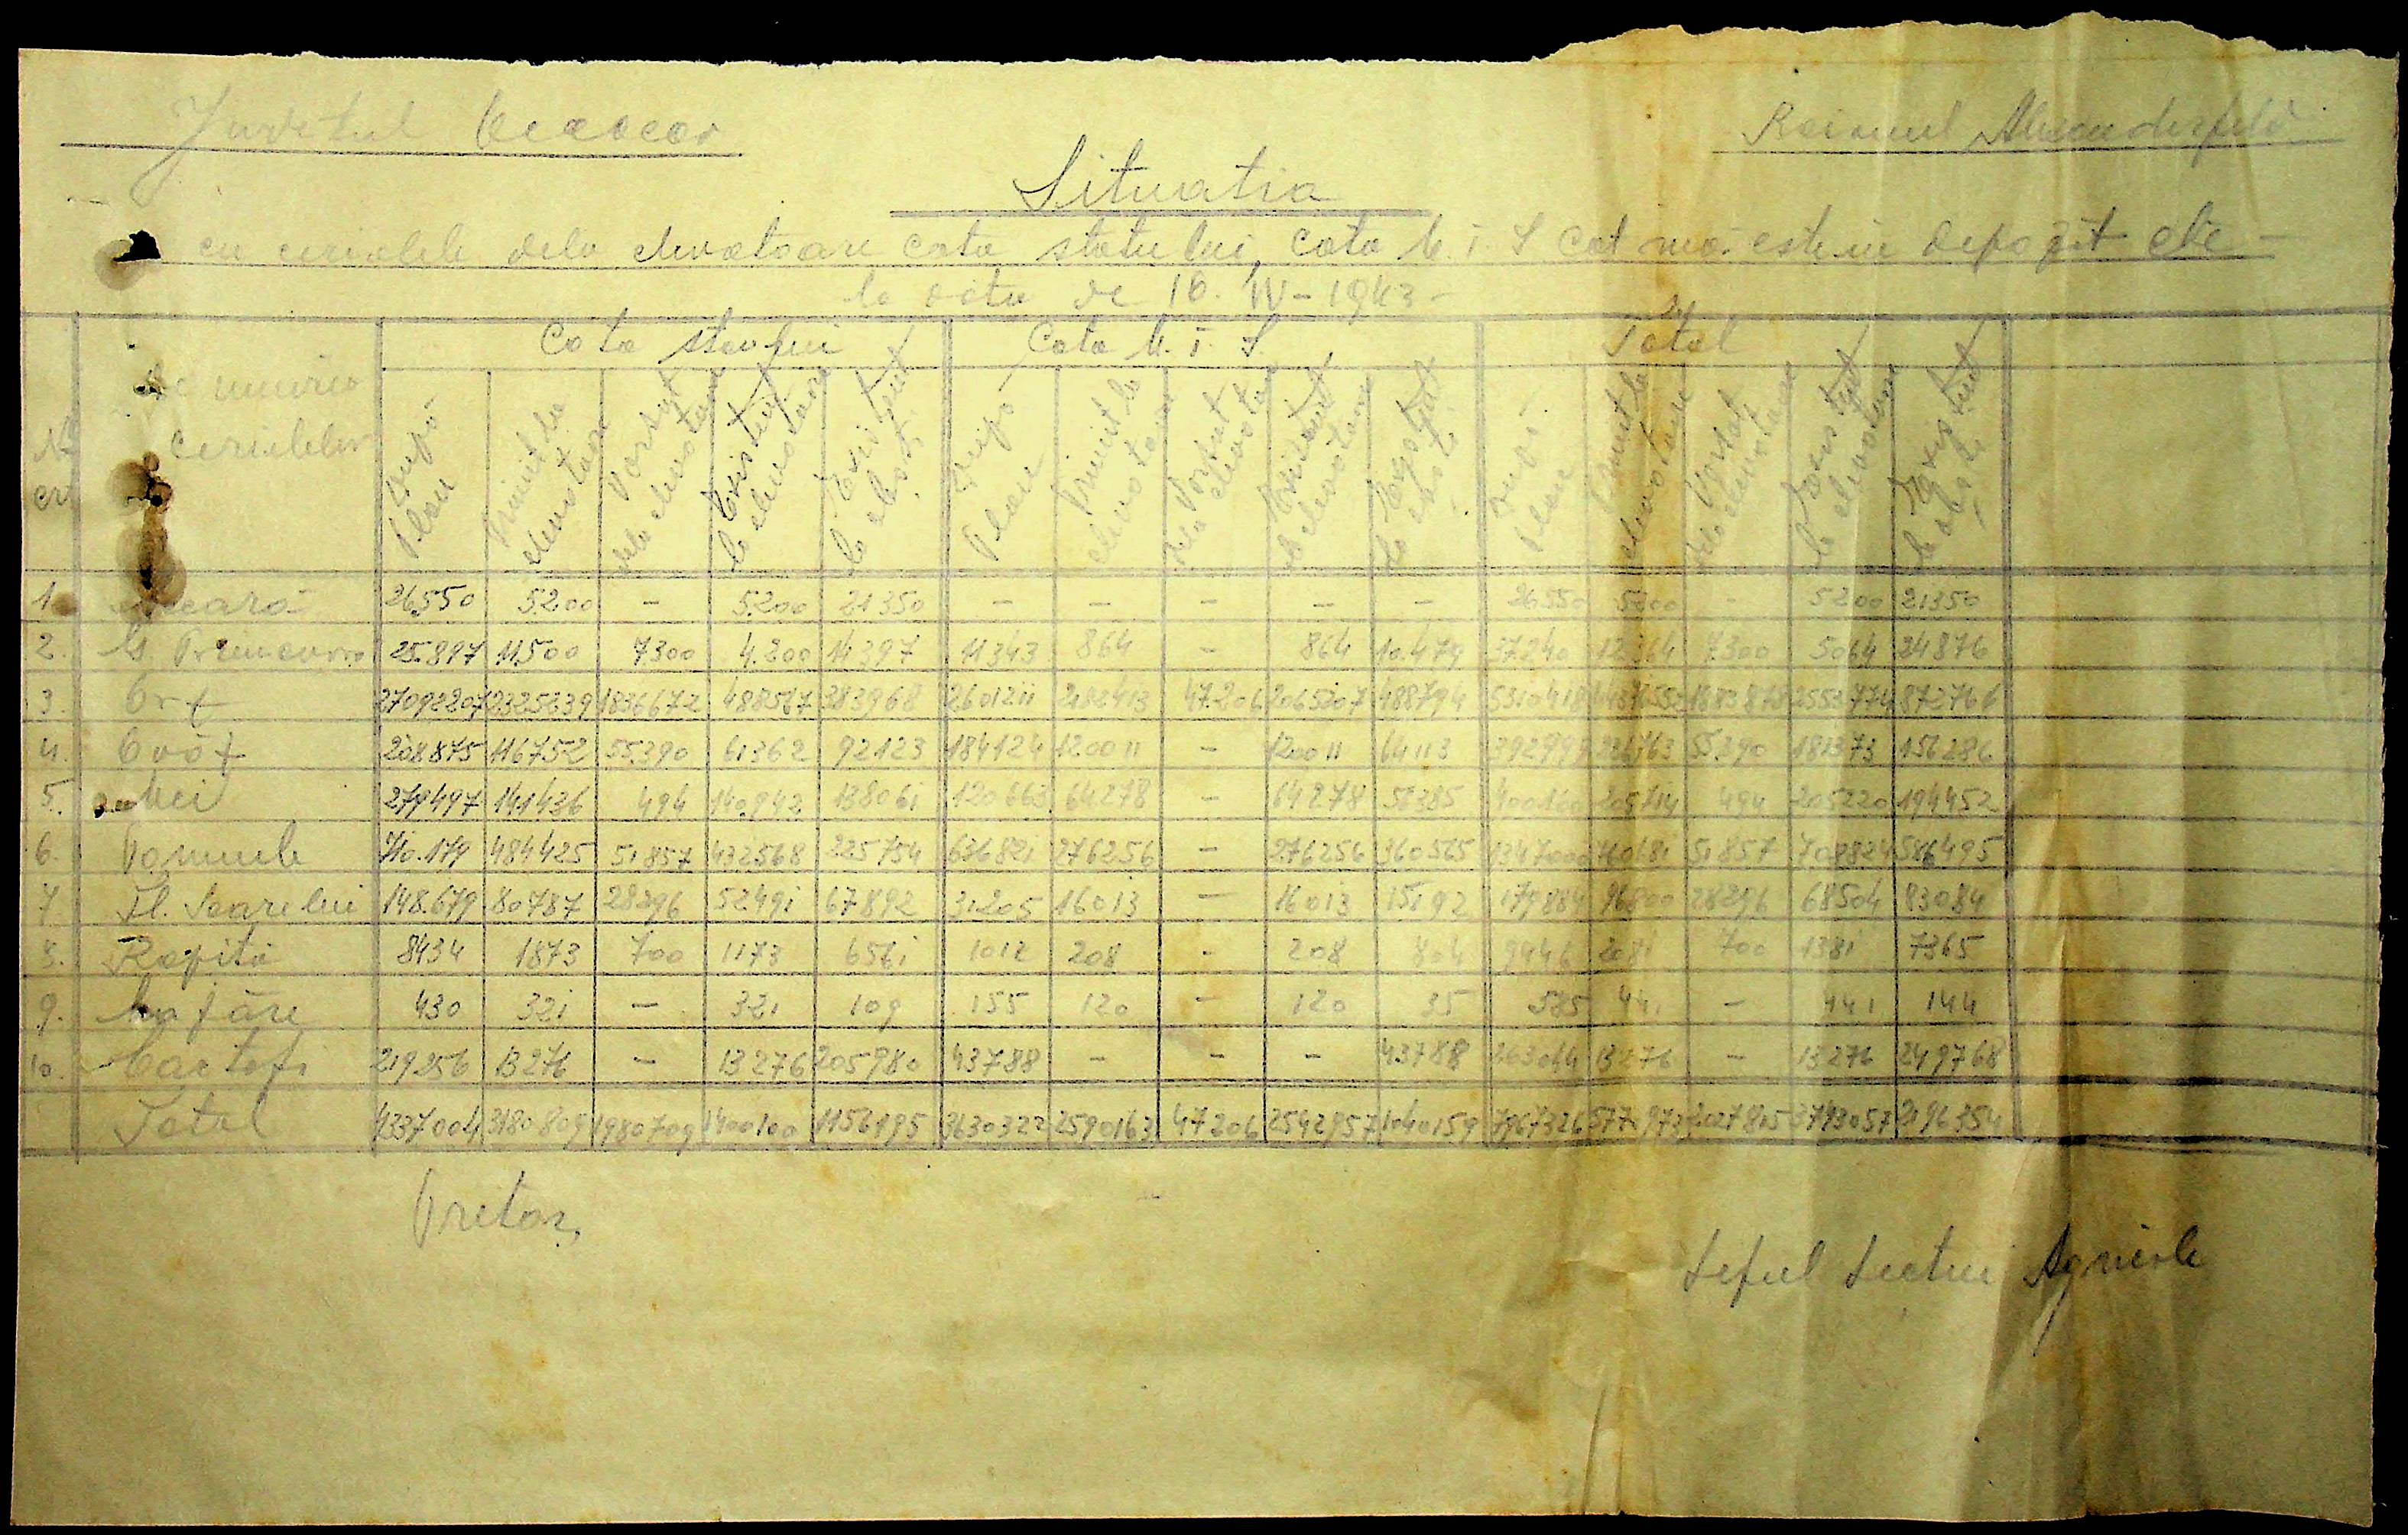 Județul Oceacov
Raionul Alexanderfeld
Situatia
cu cerialele dela elevatoare cota statului, cota M. i S cat mai este in depozit etc -
la data de 10. IV - 1943 -
Cota statului
Cota M. i. S.
Total
Nr. crt
Denumirea cerialelor
După Plan
Primit la elevatoare
Portat dela elevatoare
Existent la elevatoare
Existent la obști
După Plan
Primit la elevatoare
Dela Portat elevatoare
Existent la elevatoare
Existent la obște
După Plan
Primit la elevatoare
Portat dela elevatoare
Existent la elevatoare
Existent la obște
1. Secară 26550 5200 - 5.200 21350 - - - - - 26550 5200 - 5200 21350
2. G Primavara 25.897 11,500 7300 4.200 14397 11343 864 - 864 10.479 37240 12364 7300 5064 24876
3. Orz 27092207 2325239 1836672 488567 383968 2601211 2112413 47206 2065207 488794 5310418 4437652 1883878 2553774 872766
4. Ovăz 208875 116752 55.390 61362 92123 184124 120011 - 120011 64113 392999 236763 55.390 181373 156286
5. Mei 279497 141436 494 140.942 138061 120663 64278 - 64278 56385 400160 205714 494 205220 194452
6. Porumb 710.179 484425 51857 432568 225754 636821 276256 - 276256 360565 1347000 760681 51857 708824 586495
7. Fl. Soarelui 148.679 80787 28296 52491 67892 31205 16013 - 16013 15192 179884 96800 28296 68504 83084
8. Rapită 8434 1873 700 1173 6561 1012 208 - 208 804 9446 2081 700 1381 7365
9. Mazăre 430 321 - 321 109 155 120 - 120 35 585 441 - 441 144
10. Cartofi 219256 13276 - 13276 205980 43788 - - - 43788 263044 13276 - 13276 249768
Total 4337004 3180809 1980709 1400100 1156195 3630322 2590163 47206 2542957 1040159 7967326 5770973 2027815 3743057 2196354
Pretor,
Seful Sectiei Agricole